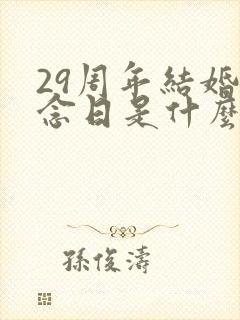 29周年結婚
念日是什麼
孫俊濤